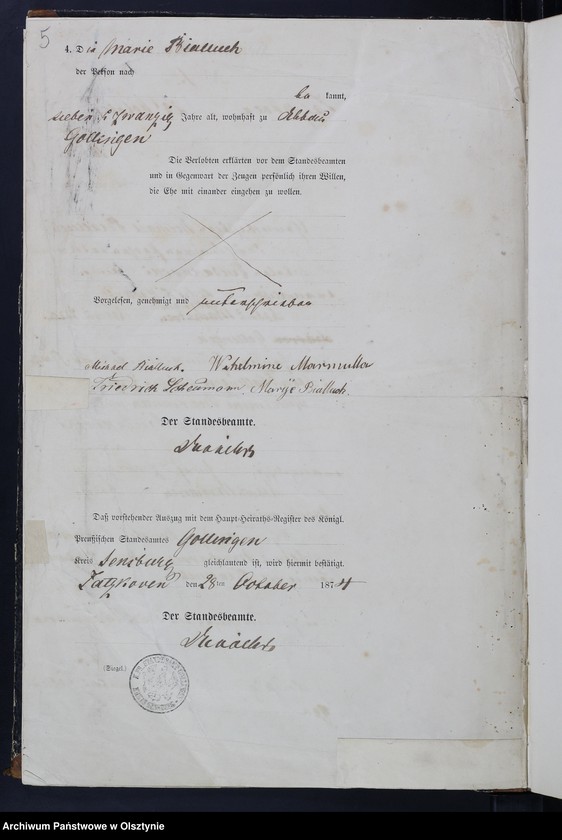 5
4. Die Marie Bialluch
der Person nach
be kannt,
sieben & zwanzig Jahre alt, wohnhaft zu Abbau
Gollingen
Die Verlobten erklärten vor dem Standesbeamten
und in Gegenwart der Zeugen persönlich ihren Willen,
die Ehe mit einander eingehen zu wollen.
Vorgelesen, genehmigt und unterschrieben
Michael Bialluch. Wilhelmine Marmulla
Friedrich Scheumann. Marije Bialluch.
Der Standesbeamte.
Daß vorstehender Auszug mit dem Haupt-Heiraths-Register des Königl.
Preußischen Standesamtes Gollingen
Kreis Sensburg gleichlautend ist, wird hiermit bestätigt.
den 28ten October 1874
Der Standesbeamte.
(Siegel.)
Archiwum Państwowe w Olsztynie